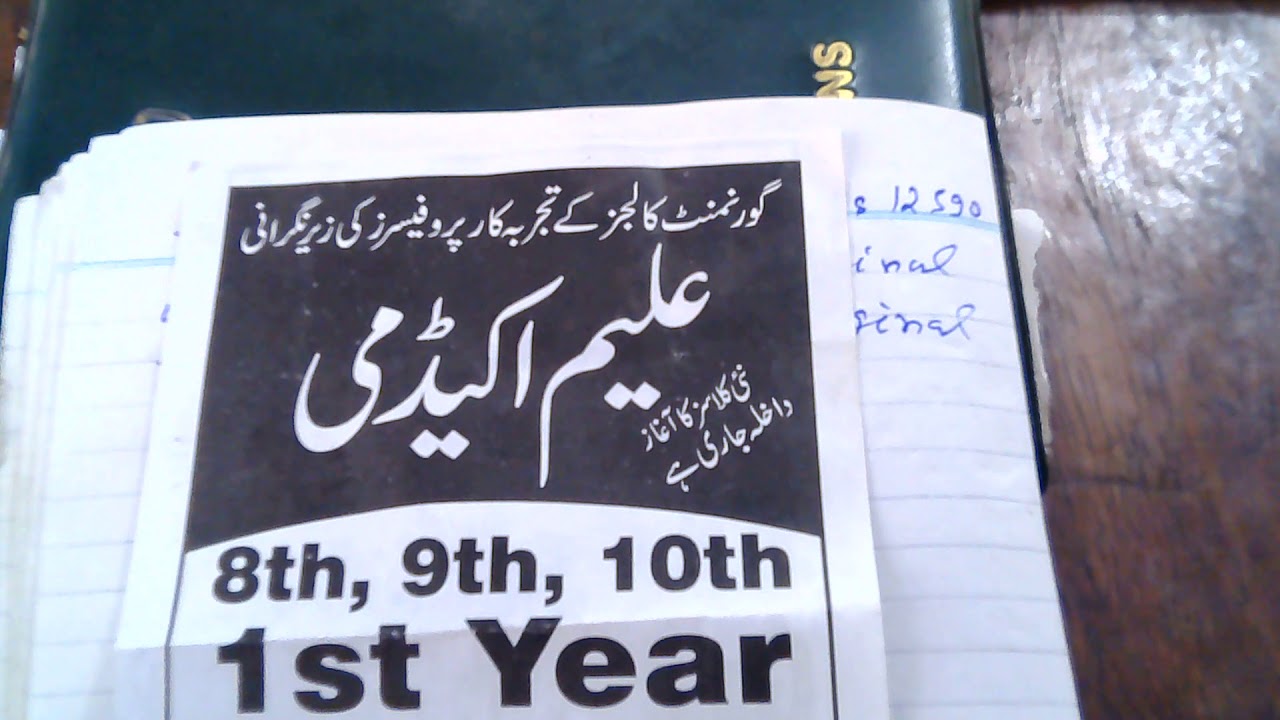 NS
گورنمنٹ کالجز کے تجربہ کار پروفیسرز کی زیر نگرانی
علیم اکیڈمی
نئی کلاسز کا آغاز
داخلہ جاری ہے
8th, 9th, 10th
1st Year
s 12590
inal
ginal